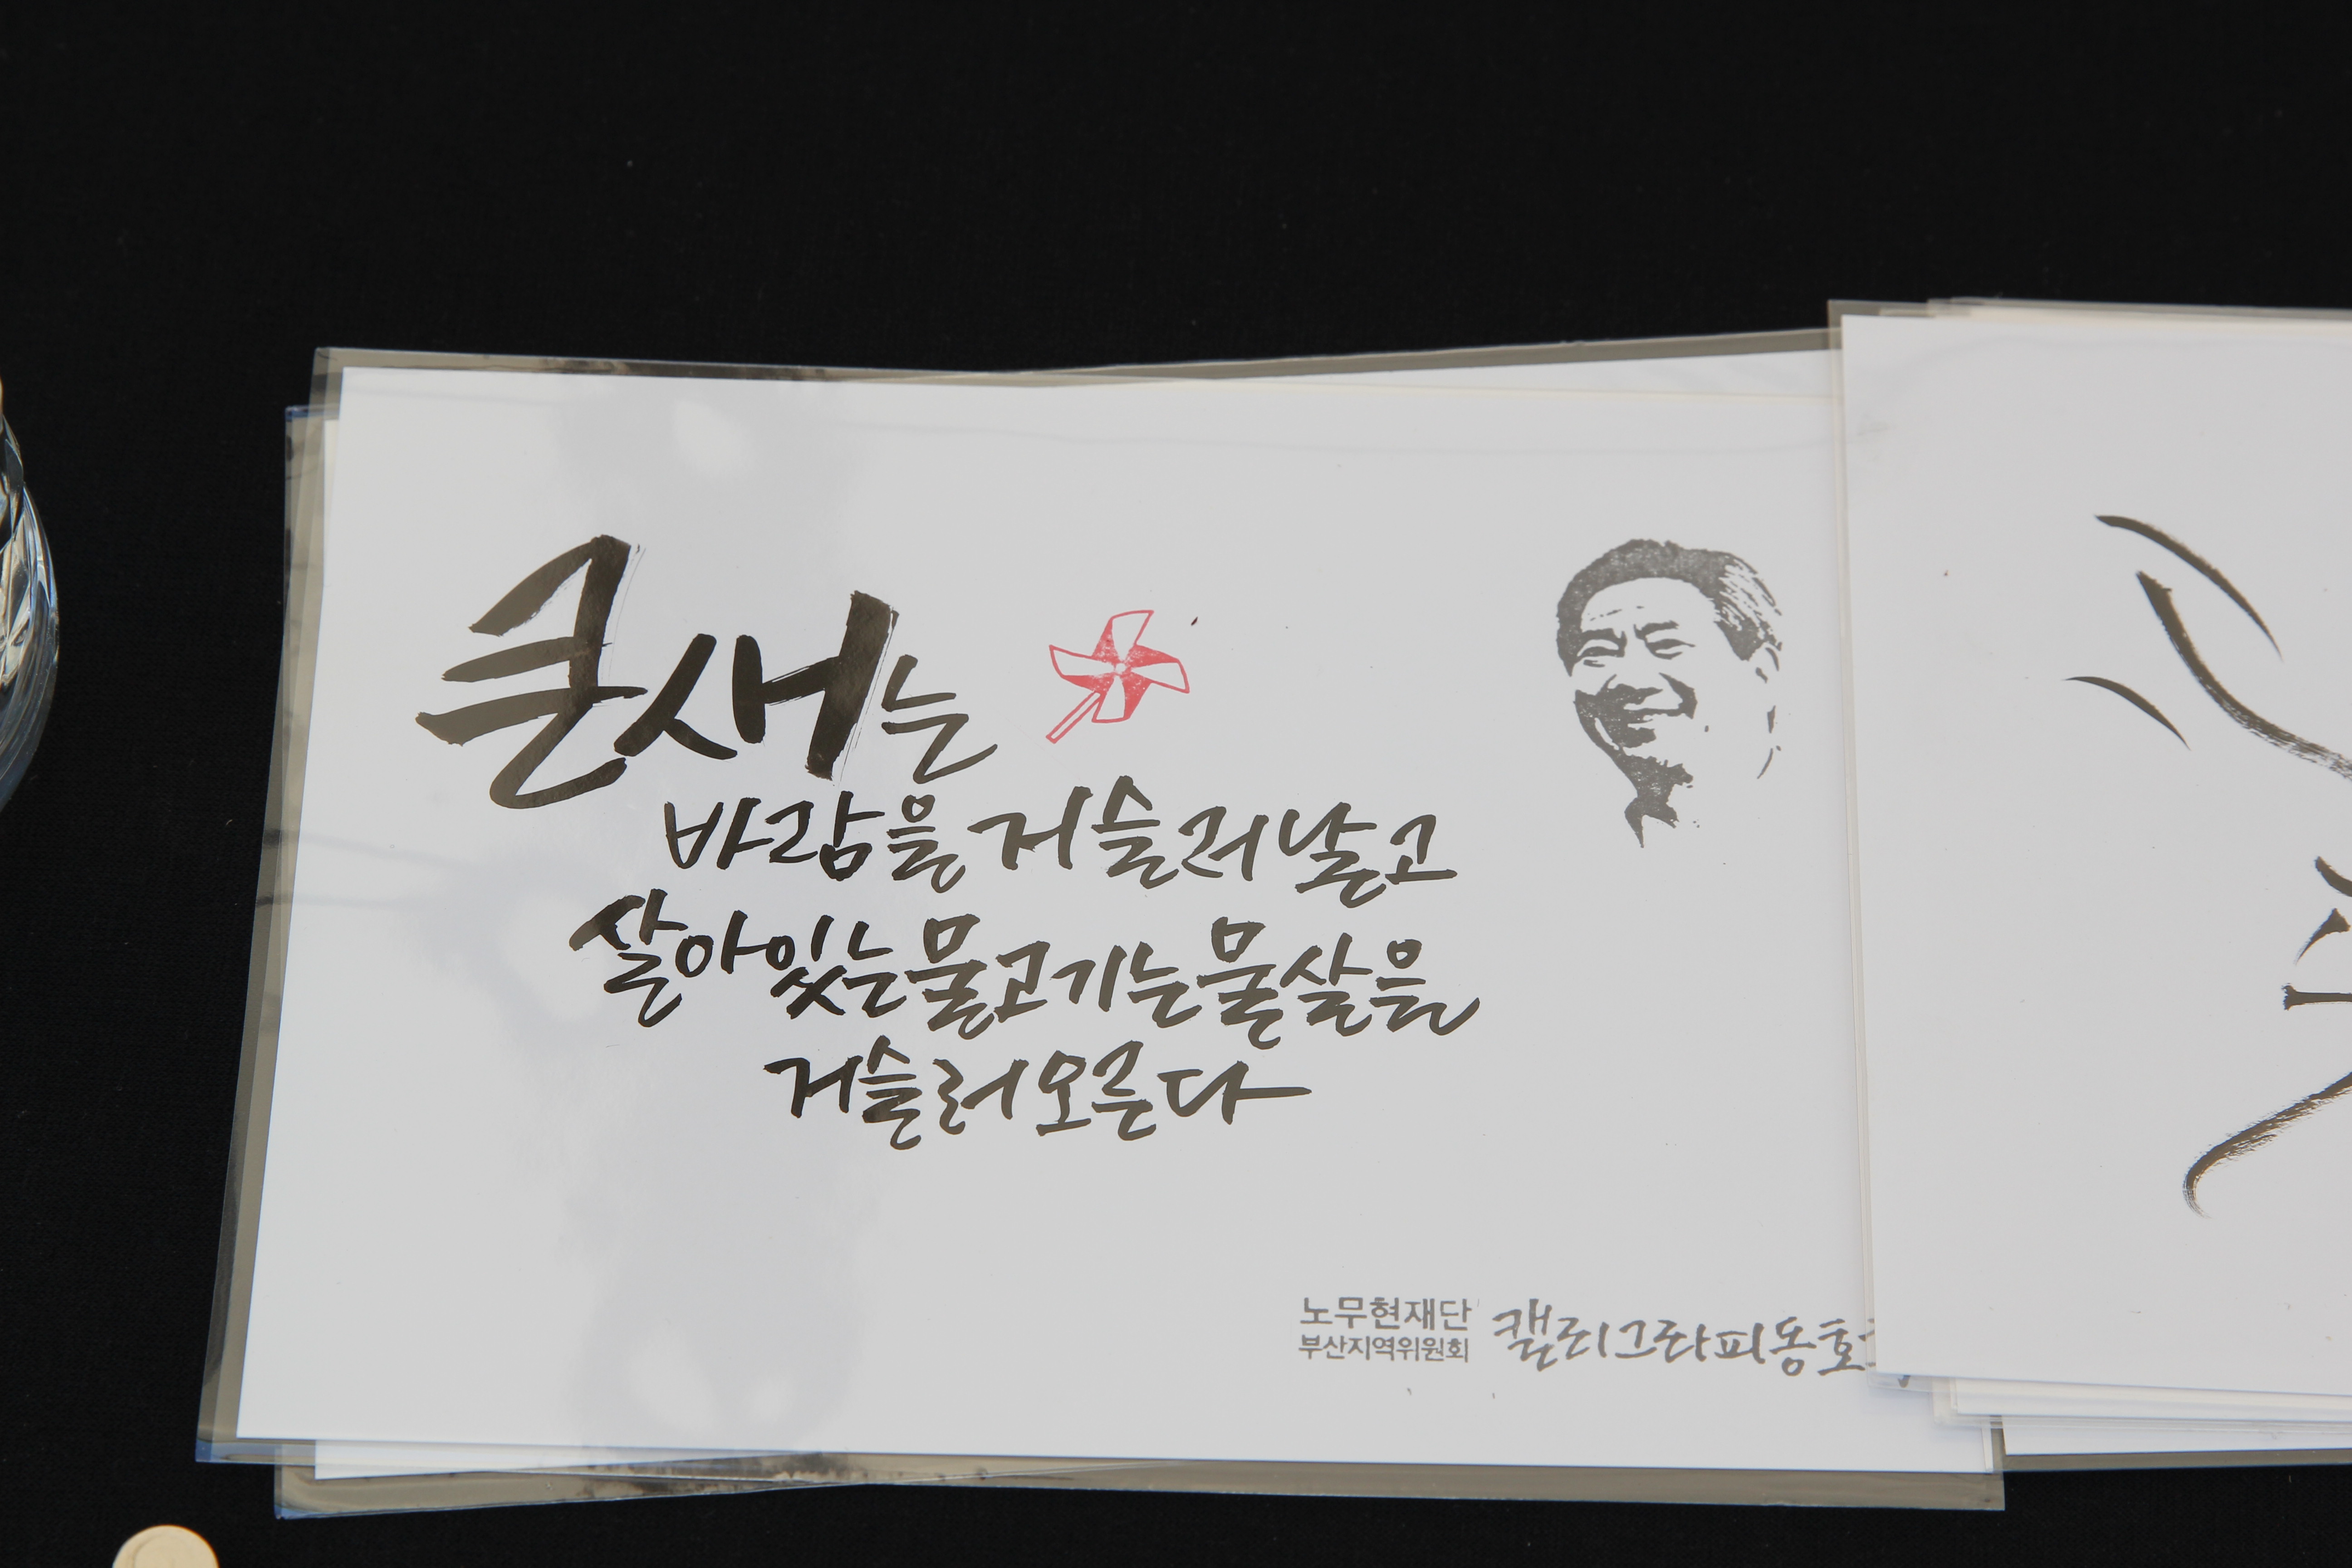 큰새는
바람을 거슬러 날고
살아있는 물고기는 물살을
거슬러 오른다
노무현재단
부산지역위원회
캘리그라피동호